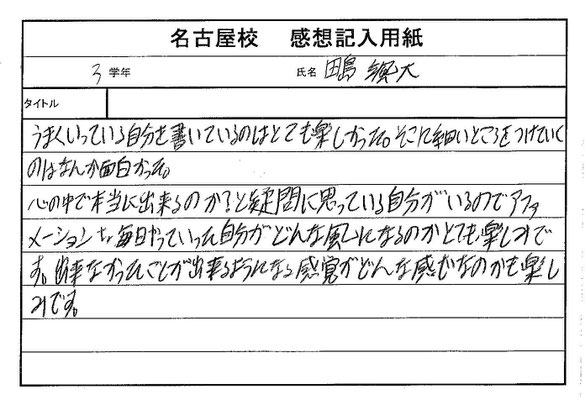 名古屋校 感想記入用紙
3 学年 氏名 田島 大
タイトル
うまくいっている自分を書いているのはとても楽しかった。そこに細いところをつけていく
のはなんか面白かった。
心の中で本当に出来るのか?と疑問に思っている自分がいるのでアファ
メーションを毎日やっていった自分がどんな風になるのかとても楽しみで
す。出来なかったことが出来るようになる感覚がどんな感じなのかも楽し
みです。